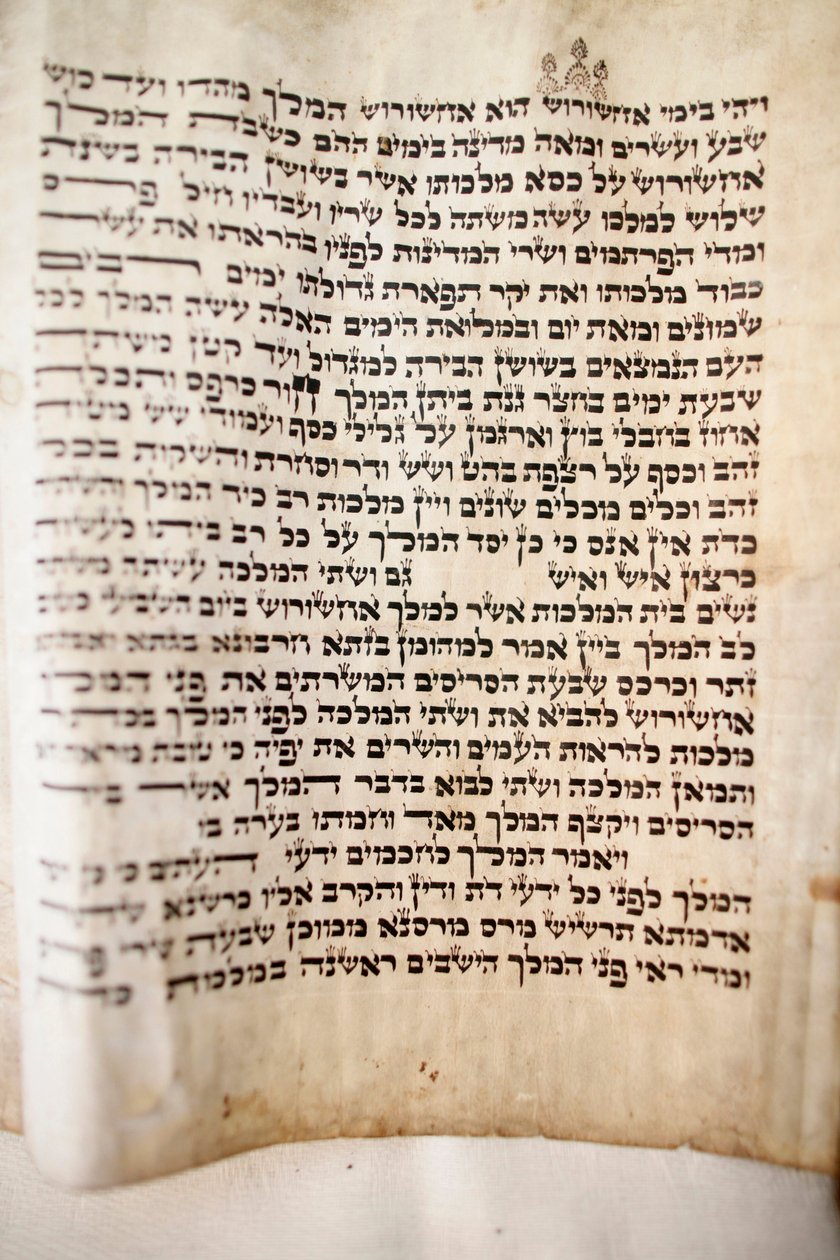 ויהי בימי אחשורוש הוא אחשורוש המלך מהדו ועד כוש
שבע ועשרים ומאה מדינה בימים ההם כשבת המלך
אחשורוש על כסא מלכותו אשר בשושן הבירה בשנת
שלוש למלכו עשה משתה לכל שריו ועבדיו חיל פרס
ומדי הפרתמים ושרי המדינות לפניו בהראתו את עשר
כבוד מלכותו ואת יקר תפארת גדולתו ימים רבים
שמונים ומאת יום ובמלואת הימים האלה עשה המלך לכל
העם הנמצאים בשושן הבירה למגדול ועד קטן משתה
שבעת ימים בחצר גנת ביתן המלך חור כרפס ותכלת
אחוז בחבלי בוץ וארגמן על גלילי כסף ועמודי שש מטות
זהב וכסף על רצפת בהט ושש ודר וסחרת והשקות בכלי
זהב וכלים מכלים שונים ויין מלכות רב כיד המלך והשתיה
כדת אין אנס כי כן יסד המלך על כל רב ביתו לעשות
כרצון איש ואיש גם ושתי המלכה עשתה משתה
נשים בית המלכות אשר למלך אחשורוש ביום השביעי כטוב
לב המלך ביין אמר למהומן בזתא חרבונא בגתא ואבגתא
זתר וכרכס שבעת הסריסים המשרתים את פני המלך
אחשורוש להביא את ושתי המלכה לפני המלך בכתר
מלכות להראות העמים והשרים את יפיה כי טובת מראה
ותמאן המלכה ושתי לבוא בדבר המלך אשר ביד
הסריסים ויקצף המלך מאד וחמתו בערה בו
ויאמר המלך לחכמים ידעי העתים כי כן
המלך לפני כל ידעי דת ודין והקרב אליו כרשנא שתר
אדמתא תרשיש מרס מרסנא ממוכן שבעת שרי
ומדי ראי פני המלך הישבים ראשנה במלכות